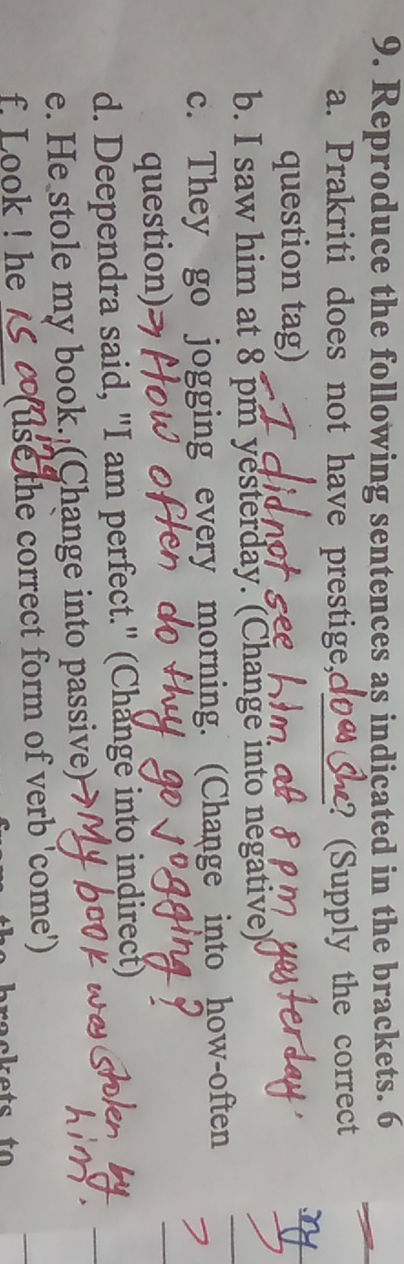 9. Reproduce the following sentences as indicated in the brackets. 6
a. Prakriti does not have prestige, does she? (Supply the correct
question tag)
- I did not see him at 8 pm yesterday.
b. I saw him at 8 pm yesterday. (Change into negative)
c. They go jogging every morning. (Change into how-often
question) → How often do they go jogging?
d. Deependra said, "I am perfect." (Change into indirect)
e. He stole my book. (Change into passive) → My book was stolen by
him.
f. Look ! he is coming (use the correct form of verb 'come')
brackets to